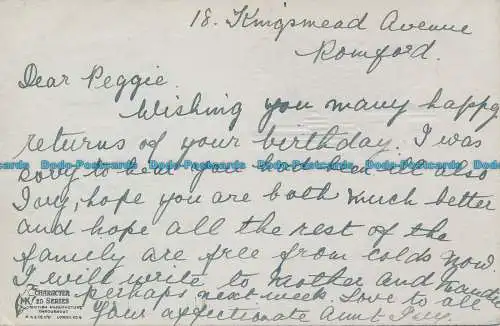 18. Kingsmead Avenue
Romford.
Dear Peggie
Wishing you many happy
returns of your birthday. I was
sorry to hear you had been ill also
Ivy, hope you are both much better
and hope all the rest of the
family are free from colds now
I will write to mother and
perhaps next week. Love to all
Your affectionate Aunt
Dodo-Postcards Dodo-Postcards Dodo-Postcards Dodo-Postcards Dodo-Postcards
CHARACTER
SERIES
BRITISH MANUFACTURE
THROUGHOUT